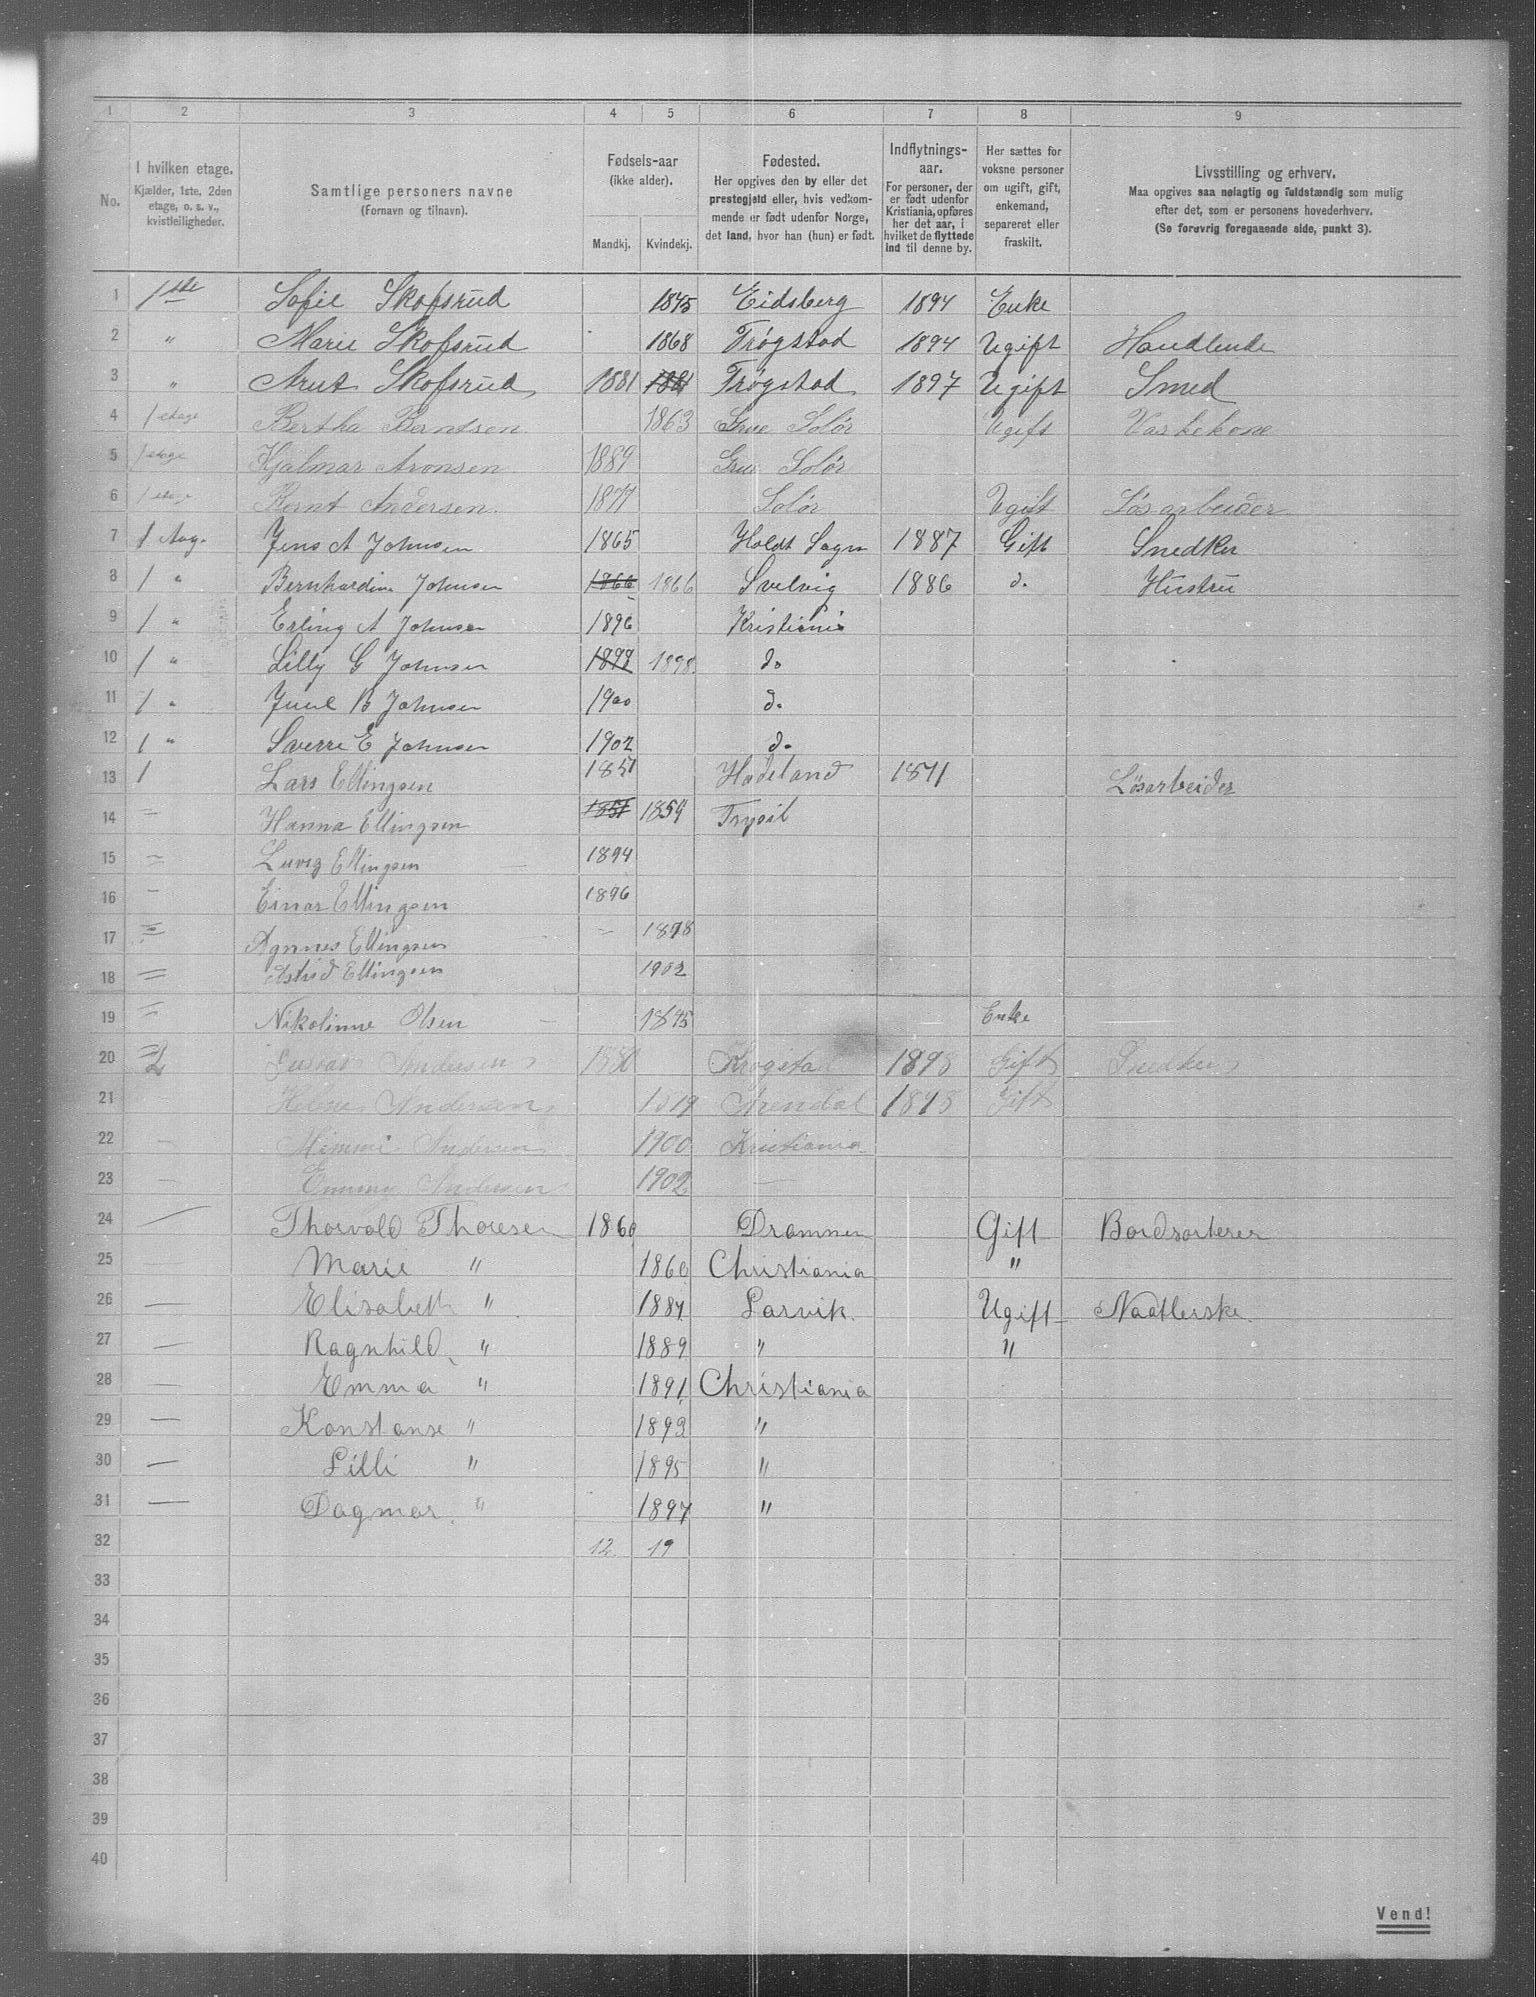 1 2 3 4 5 6 7 8 9
No. I hvilken etage. Kjælder, 1ste, 2den etage, o. s. v., kvistleiligheder. Samtlige personers navne (Fornavn og tilnavn). Fødsels-aar (ikke alder). Mandkj. Kvindekj. Fødested. Her opgives den by eller det prestegjeld eller, hvis vedkommende er født udenfor Norge, det land, hvor han (hun) er født. Indflytningsaar. For personer, der er født udenfor Kristiania, opføres her det aar, i hvilket de flyttede ind til denne by. Her sættes for voksne personer om ugift, gift, enkemand, separeret eller fraskilt. Livsstilling og erhverv. Maa opgives saa nølagtig og fuldstændig som mulig efter det, som er personens hovederhverv. (Se forøvrig foregaaende side, punkt 3).
1 1ste Sofie Skofsrud 1845 Eidsberg 1894 Enke
2 " Marie Skofsrud 1868 Trøgstad 1894 Ugift Handlende
3 " Arnt Skofsrud 1881 1881 Trøgstad 1897 Ugift Smed
4 1 etage Bertha Berntsen 1863 Grue Solør Ugift Vaskekone
5 1 etage Hjalmar Aronsen 1889 Grue Solør
6 1 etage Bernt Andersen 1877 Solør Ugift Løsarbeider
7 1 Jens A Johnsen 1865 Holdt Sogn 1887 Gift Snedker
8 1 " Bernhardine Johnsen 1866 1866 Svelvig 1886 do Hustru
9 1 " Erling A Johnsen 1896 Kristiania
10 1 " Lilly G Johnsen 1898 1898 do
11 1 " Juul B Johnsen 1900 do
12 1 " Sverre E Johnsen 1902 do
13 1 Lars Ellingsen 1851 Hadeland 1871 Løsarbeider
14 — Hanna Ellingsen 1851 1859 Trysil
15 — Luvig Ellingsen 1894
16 — Einar Ellingsen 1896
17 — Agnnes Ellingsen 1898
18 — Astrid Ellingsen 1902
19 — Nikolinne Olsen 1845 Enke
20 2 Gustav Andersen 1880 Krogstad 1898 Gift Snedker
21 Andersen 1879 Arendal 1898 Gift
22 — Mimmi Andersen 1900 Kristiania
23 — Emmy Andersen 1902 —
24 — Thorvald Thoresen 1860 Drammen Gift Bordsorterer
25 — Marie " 1860 Christiania "
26 — Elisabeth " 1887 Larvik. Ugift Naatlerske.
27 — Ragnhild " 1889 " "
28 — Emma " 1891 Christiania
29 — Konstanse " 1893 "
30 — Lilli " 1895 "
31 — Dagmar. " 1897 "
32 12 19
33
34
35
36
37
38
39
40
Vend!